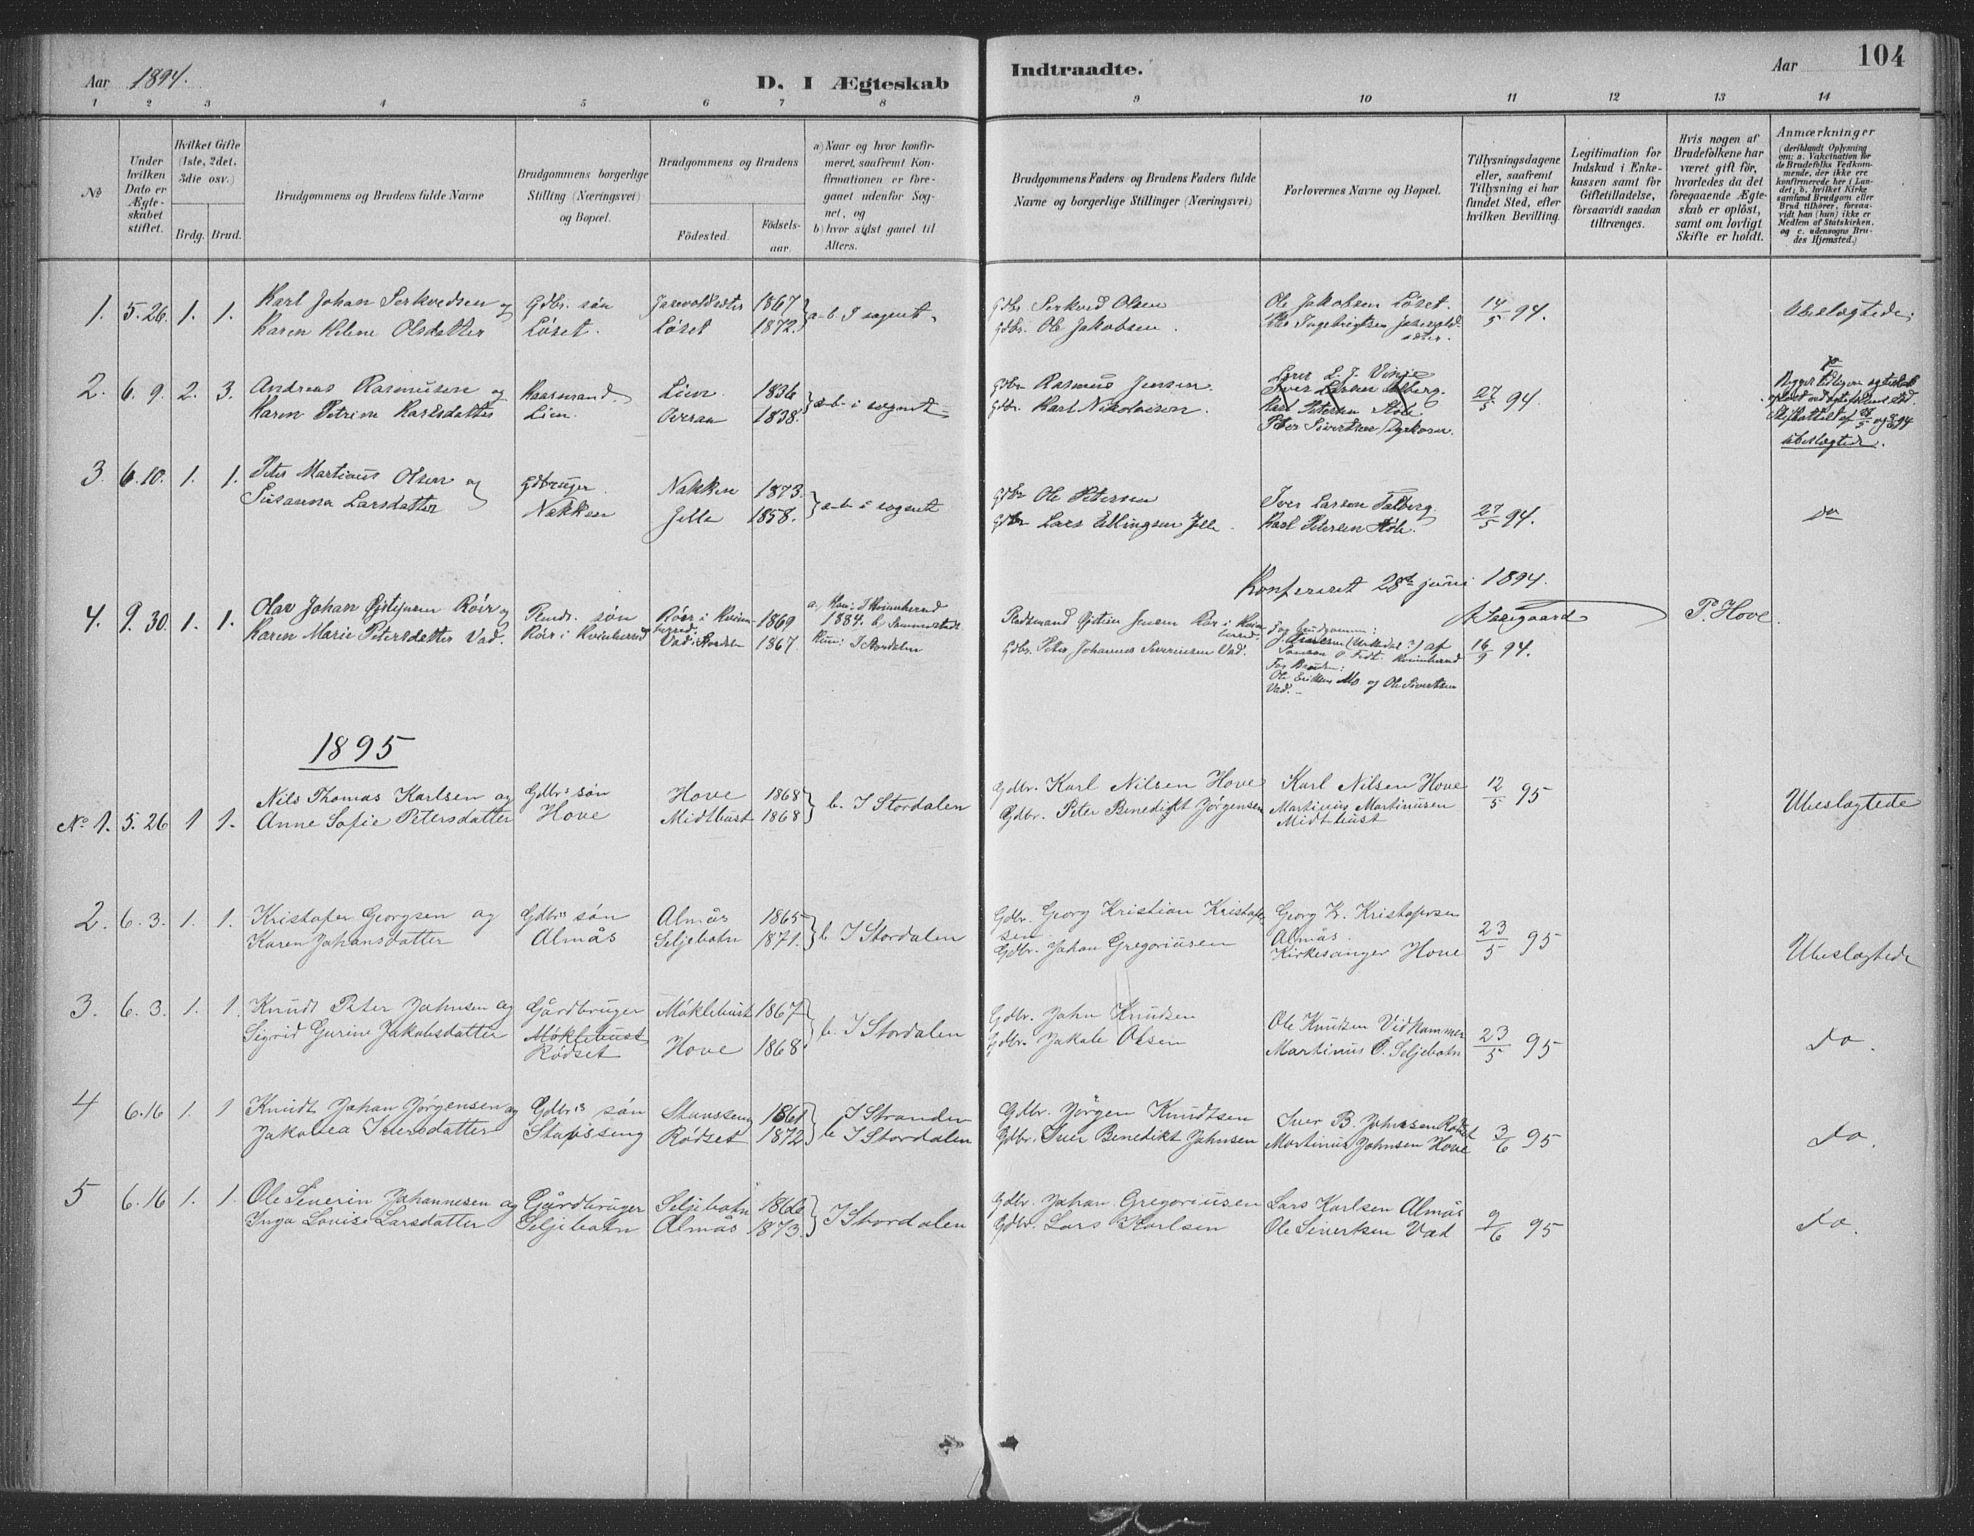 Aar 1894.
D. I Ægteskab
Indtraadte.
Aar
104
1 2 3 4 5 6 7 8 9 10 11 12 13 14
№
Under hvilken Dato er Ægteskabet stiftet.
Hvilket Gifte (1ste, 2det, 3die osv.)
Brdg. Brud.
Brudgommens og Brudens fulde Navne
Brudgommens borgerlige Stilling (Næringsvei) og Bopæl.
Brudgommens og Brudens
Fødested.
Fødselsaar.
a) Naar og hvor konfirmeret, saafremt Konfirmationen er foregaaet udenfor Sognet, og
b) hvor sidst gaaet til Alters.
Brudgommens Faders og Brudens Faders fulde Navne og borgerlige Stillinger (Næringsvei)
Forlovernes Navne og Bopæl.
Tillysningsdagene eller, saafremt Tillysning ei har fundet Sted, efter hvilken Bevilling.
Legitimation for Indskud i Enkekassen samt for Giftetilladelse, forsaavidt saadan tiltrænges.
Hvis nogen af Brudefolkene har været gift før, hvorledes da det foregaaende Ægteskab er opløst, samt om lovligt Skifte er holdt.
Anmærkninger
(deriblandt Oplysning om: a. Vakcination for de Brudefolks Vedkommende, der ikke ere konfirmerede her i Landet; b. hvilket Kirkesamfund Brudgom eller Brud tilhører, forsaavidt han (hun) ikke er Medlem af Statskirken, og c. udensogns Brudes Hjemsted.)
1. 5.26. 1. 1. Karl Johan Serkvedsen og Gdbr. søn 1867 a-b I sognet. Gdbr. Serkved Olsen Ole Jakobsen Løset. 14/5 94. Ubeslægtede.
Karen Helene Olsdatter Løset. Løset 1872. Gdbr. Ole Jakobsen.
2. 6.9. 2. 3. Andreas Rasmusen og Lien 1836 a-b i sognet Gdbr Rasmus Jensen. 27/5 94.
Karen Petrine Karlsdatter Lien. Overaa 1838. Gdbr. Karl Nikolaisen. Iver Larsen
Karl Petersen
Peter Sivertsen
ubeslægtede.
3. 6.10. 1. 1. Peter Martinus Olsen og Gdbruger Nakken 1873. a-b i sognet Gdbr Ole Petersen Iver Larsen 27/5 94. do
Susanna Larsdatter Nakken Jelle 1858. Gdbr Lars Ellingsen Jelle. Karl Petersen
Konfereret 28de juni 1894.
P. Hove
4. 9.30. 1. 1. Olav Johan Røir og søn Røir i Kvinnherred 1869 a) Han: I Kvinnherred 1884. 16/9 94.
Karen Marie Petersdatter Vad. Røir i Kvinherred Vad i Stordalen 1867. Hun: I Stordalen Gdbr. Peter Johannes Severinsen Vad.
For Brudgommen:
For Bruden:
Ole Eriksen Mo og Ole Sivertsen Vad.
1895
No 1. 5.26 1 1. Nils Thomas Karlsen og Gdbrs søn Hove 1868 b. I Stordalen Gdbr. Karl Nilsen Hove Karl Nilsen Hove 12/5 95 Ubeslægtede
Anne Sofie Petersdatter Hove Midthust 1868 Gdbr. Peter Benedikt Jörgensen Martinus Martinusen
Midthust
2. 6.3. 1. 1. Kristofer Georgsen og Gdbrs søn Almås 1865 b. I Stordalen Gdbr. Georg Kristian Kristofersen Georg K. Kristofersen 23/5 95 Ubeslægtede
Karen Johansdatter Almås Seljebotn 1871. Gdbr. Johan Gregoriusen Almås.
Kirkesanger Hove
3. 6.3. 1. 1. Knudt Peter Johnsen og Gårdbruger Möklebust 1867 b. I Stordalen Gdbr. John Knudsen Ole Knudsen Vidhammer 23/5 95 do.
Sigrid Gurine Jakobsdatter Möklebust Rödset Hove 1868 Gdbr. Jakob Olsen Martinus O. Seljebotn
4 6.16 1. 1 Knudt Johan Jörgensen og Gdbrs søn 1861 I Stranden Gdbr. Jörgen Knudtsen Iver B. Johnsen Rödset 3/6 95 do.
Jakobea Iversdatter Rödset 1872 b. I Stordalen Gdbr. Iver Benedikt Johnsen Martinus Johnsen Hove
5 6.16 1. 1. Ole Severin Johannesen og Gårdbruger Seljebotn 1866 I Stordalen Gdbr. Johan Gregoriusen Lars Karlsen Almås 9/6 95 do.
Inga Lovise Larsdatter Seljebotn Almås 1873. Gdbr. Lars Karlsen Ole Sivertsen Vad